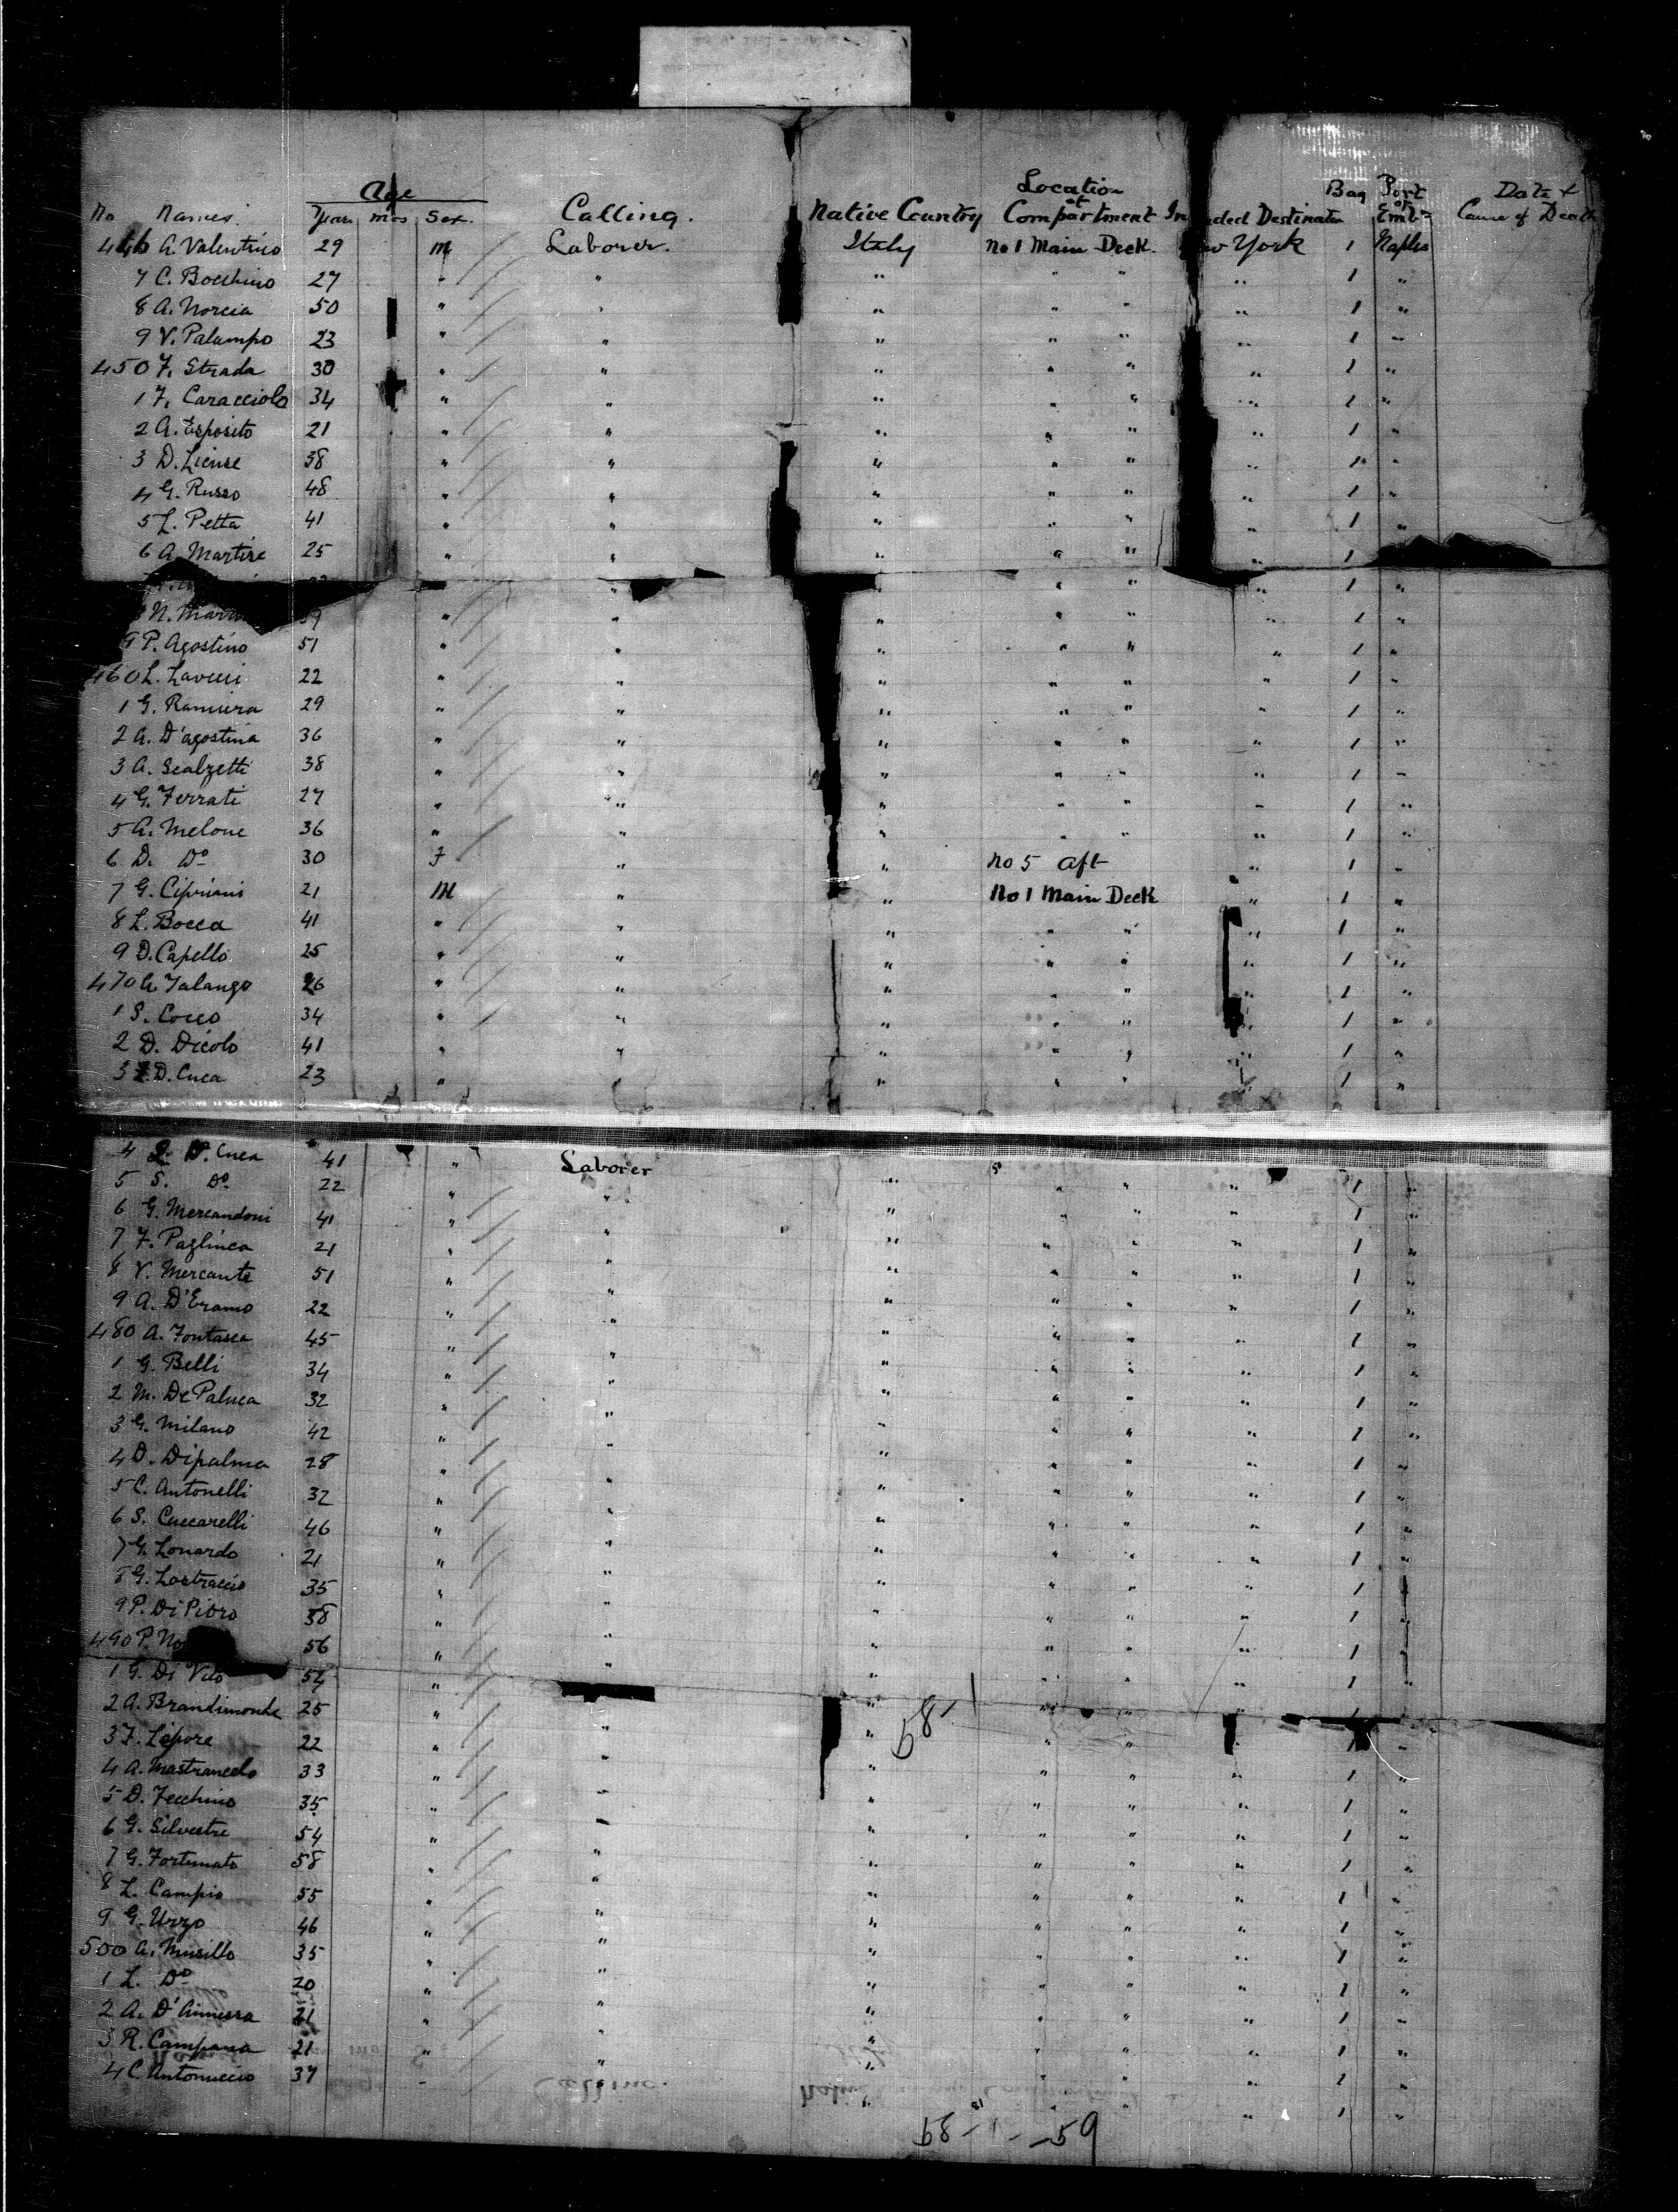 Age Location Bag Port Date &
No Names. Years mos Sex. Calling. Native Country of Compartment In ded Destination of Emb= Cause of Death
446 A. Valentino 29 M Laborer. Italy No 1 Main Deck. w York 1 Naples
7 C. Bocchino 27 " " " " " " 1 "
8 A. Norcia 50 " " " " " " 1 "
9 V. Palumpo 23 " " " " " " 1 "
450 F. Strada 30 " " " " " " 1 "
1 F. Caracciolo 34 " " " " " " 1 "
2 A. Esposito 21 " " " " " " 1 "
3 D. Liense 38 " " " " " " 1 "
4 G. Russo 48 " " " " " " 1 "
5 L. Petta 41 " " " " " " 1 "
6 A. Martire 25 " " " " " " 1 "
" " " " " 1 "
N. 39 " " " " " " 1 "
9 P. Agostino 51 " " " " " " 1 "
460 L. 22 " " " " " " 1 "
1 G. Ramiera 29 " " " " " " 1 "
2 A. D'agostina 36 " " " " " " 1 "
3 A. Scalzetti 38 " " " " " " 1 "
4 G. Ferrati 27 " " " " " " 1 "
5 A. Melone 36 " " " " " " 1 "
6 D. Do 30 F " " No 5 Aft " 1 "
7 G. Cipriani 21 M " " No 1 Main Deck " 1 "
8 L. Bocca 41 " " " " " " 1 "
9 D. Capello 25 " " " " " " 1 "
470 A. Falango 26 " " " " " " 1 "
1 S. Cocco 34 " " " " " " 1 "
2 D. Dicolo 41 " " " " " " 1 "
3 D. Cuca 23 " " " " " " 1 "
4 D. Cuca 41 " Laborer
5 S. Do 22 " " " " " " 1 "
6 G. Mercandoni 41 " " " " " " 1 "
7 F. Paglinca 21 " " " " " " 1 "
8 V. Mercante 51 " " " " " " 1 "
9 A. D'Eramo 22 " " " " " " 1 "
480 A. Fontasca 45 " " " " " " 1 "
1 G. Belli 34 " " " " " " 1 "
2 M. De Paluca 32 " " " " " " 1 "
3 G. Milano 42 " " " " " " 1 "
4 D. Dipalma 28 " " " " " " 1 "
5 C. Antonelli 32 " " " " " " 1 "
6 S. Cuccarelli 46 " " " " " " 1 "
7 G. Lonardo 21 " " " " " " 1 "
8 G. Lostraccio 35 " " " " " " 1 "
9 P. Di Pitro 38 " " " " " " 1 "
490 P. No 56 " " " " " " 1 "
1 G. Di Vito 54 " " " " " 1 "
2 A. Brandimonte 25 " " " " " "
58-1
3 F. Lepore 22 " " " " " " 1 "
4 A. Mastrancelo 33 " " " " " " 1 "
5 D. Fecchino 35 " " " " " " 1 "
6 G. Silvestre 54 " " " " " " 1 "
7 G. Fortunato 58 " " " " " " 1 "
8 L. Campio 55 " " " " " " 1 "
9 G. Urzo 46 " " " " " " 1 "
500 A. Musillo 35 " " " " " " 1 "
1 L. Do 20 " " " " " " 1 "
2 A. 21 " " " " " " 1 "
3 R. Campana 21 " " " " " " 1 "
4 C. Antonuccio 37 " " " " " " 1 "
58-1-59